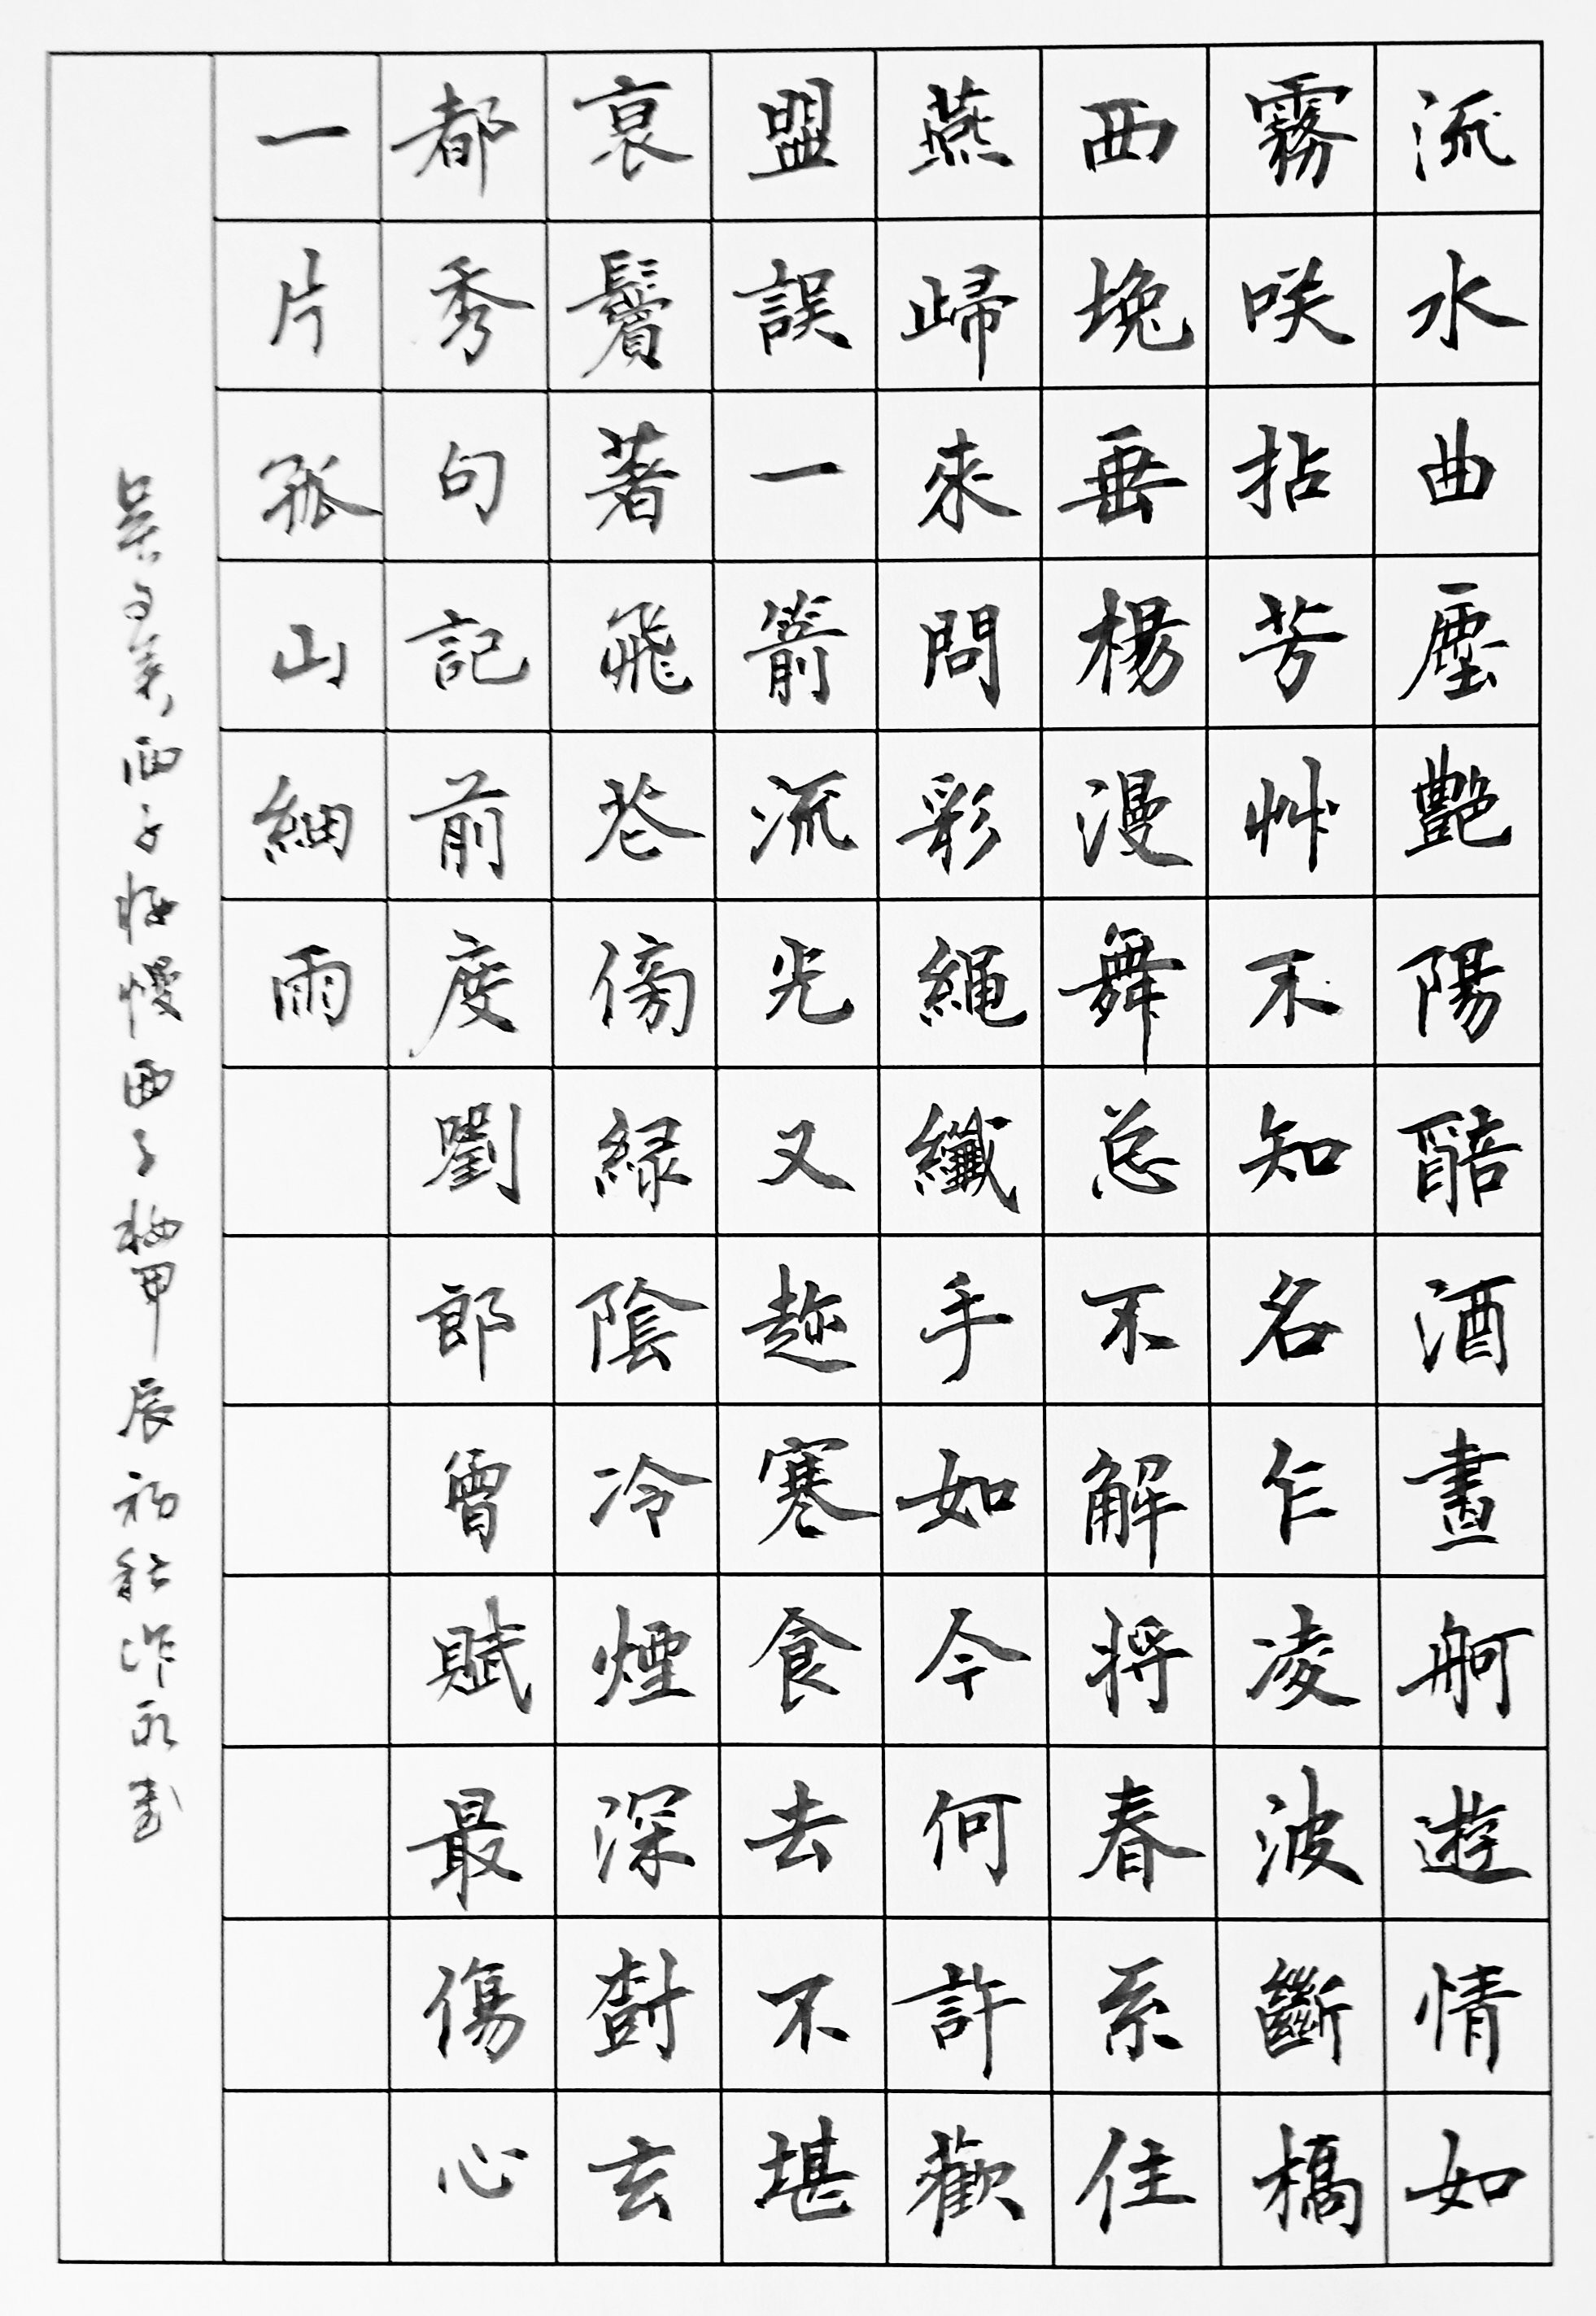 流水曲塵艷陽醅酒畫舸遊情如
霧咲拈芳艸不知名乍凌波斷橋
西堍垂楊漫舞总不解将春系住
燕歸來問彩繩纖手如今何許歡
盟誤一箭流光又趂寒食去不堪
衰鬢著飛花傍緑陰冷煙深樹玄
都秀句記前度劉郎曾賦最傷心
一片孤山細雨
吳文英西子妝慢西子妝甲辰初秋